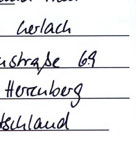 Gerlach
nstraße 69
Herrenberg
tschland